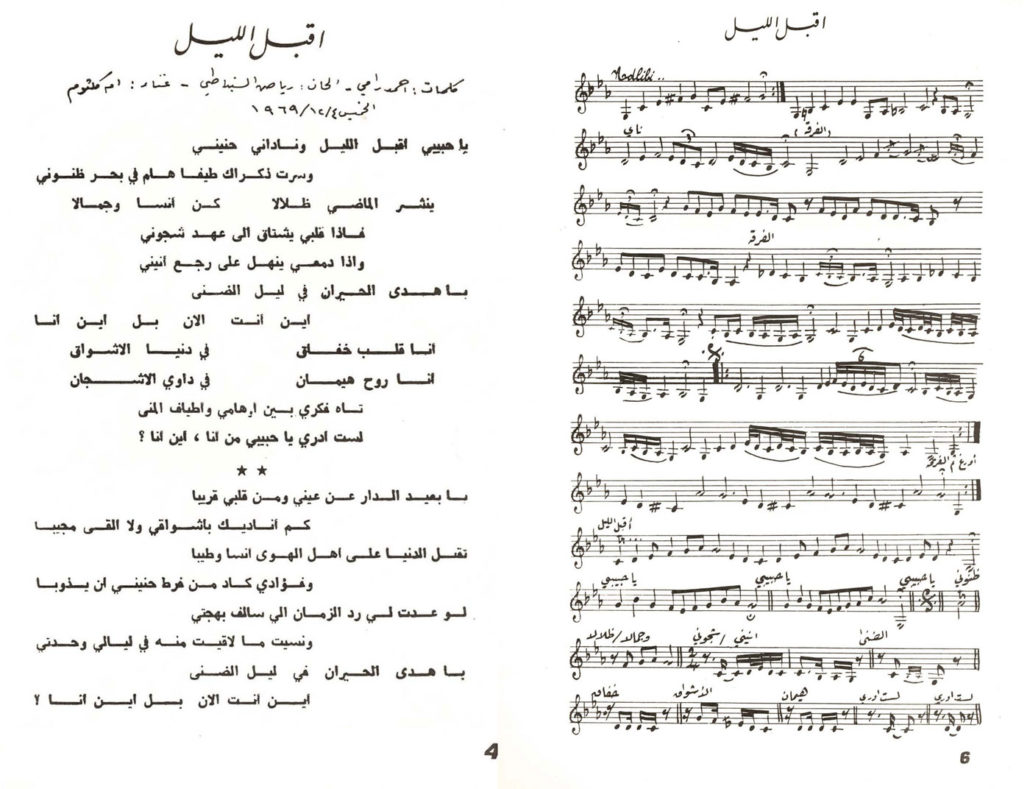 اقبل الليل
كلمات : احمد رامي - الحان : رياض السنباطي - غناء : ام كلثوم
الخميس ١٩٦٩/١٢/٤
يا حبيبي اقبل الليل وناداني حنيني
وسرت ذكراك طيفا هام في بحر ظنوني
ينشر الماضي ظلالا كن انسا وجمالا
فاذا قلبي يشتاق الى عهد شجوني
واذا دمعي ينهل على رجع انيني
يا هدى الحيران في ليل الضنى
اين انت الان بل اين انا
انا قلب خفاق في دنيا الاشواق
انا روح هيمان في داوي الاشجان
تاه فكري بين اوهامي واطياف المنى
لست ادري يا حبيبي من انا ، اين انا ؟
★ ★
يا بعيد الدار عن عيني ومن قلبي قريبا
كم اناديك باشواقي ولا القى مجيبا
تقبل الدنيا على اهل الهوى انسا وطيبا
وفؤادي كاد من فرط حنيني ان يذوبا
لو عدت لي رد الزمان الي سالف بهجتي
ونسيت ما لاقيت منه في ليالي وحدتي
يا هدى الحيران في ليل الضنى
اين انت الان بل اين انا ؟
4
اقبل الليل
Adlibi..
ناي (الفرقة)
الفرقة
6
أورغ ثم الفرقة
أقبل الليل
يا حبيبي يا حبيبي يا حبيبي ظنوني
وجمالا/ظلالا انيني/شجوني الضنى
خفاق الأشواق هيمان لست ادري لست ادري
6